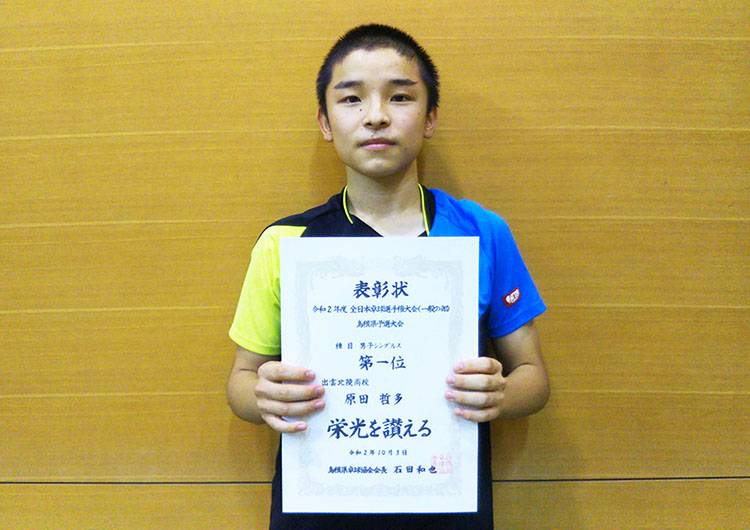 表彰状
令和2年度 全日本卓球選手権大会(一般の部)
島根県予選大会
種目 男子シングルス
第一位
出雲北陵高校
原田 哲多
栄光を讃える
令和2年10月3日
島根県卓球協会会長 石田和也